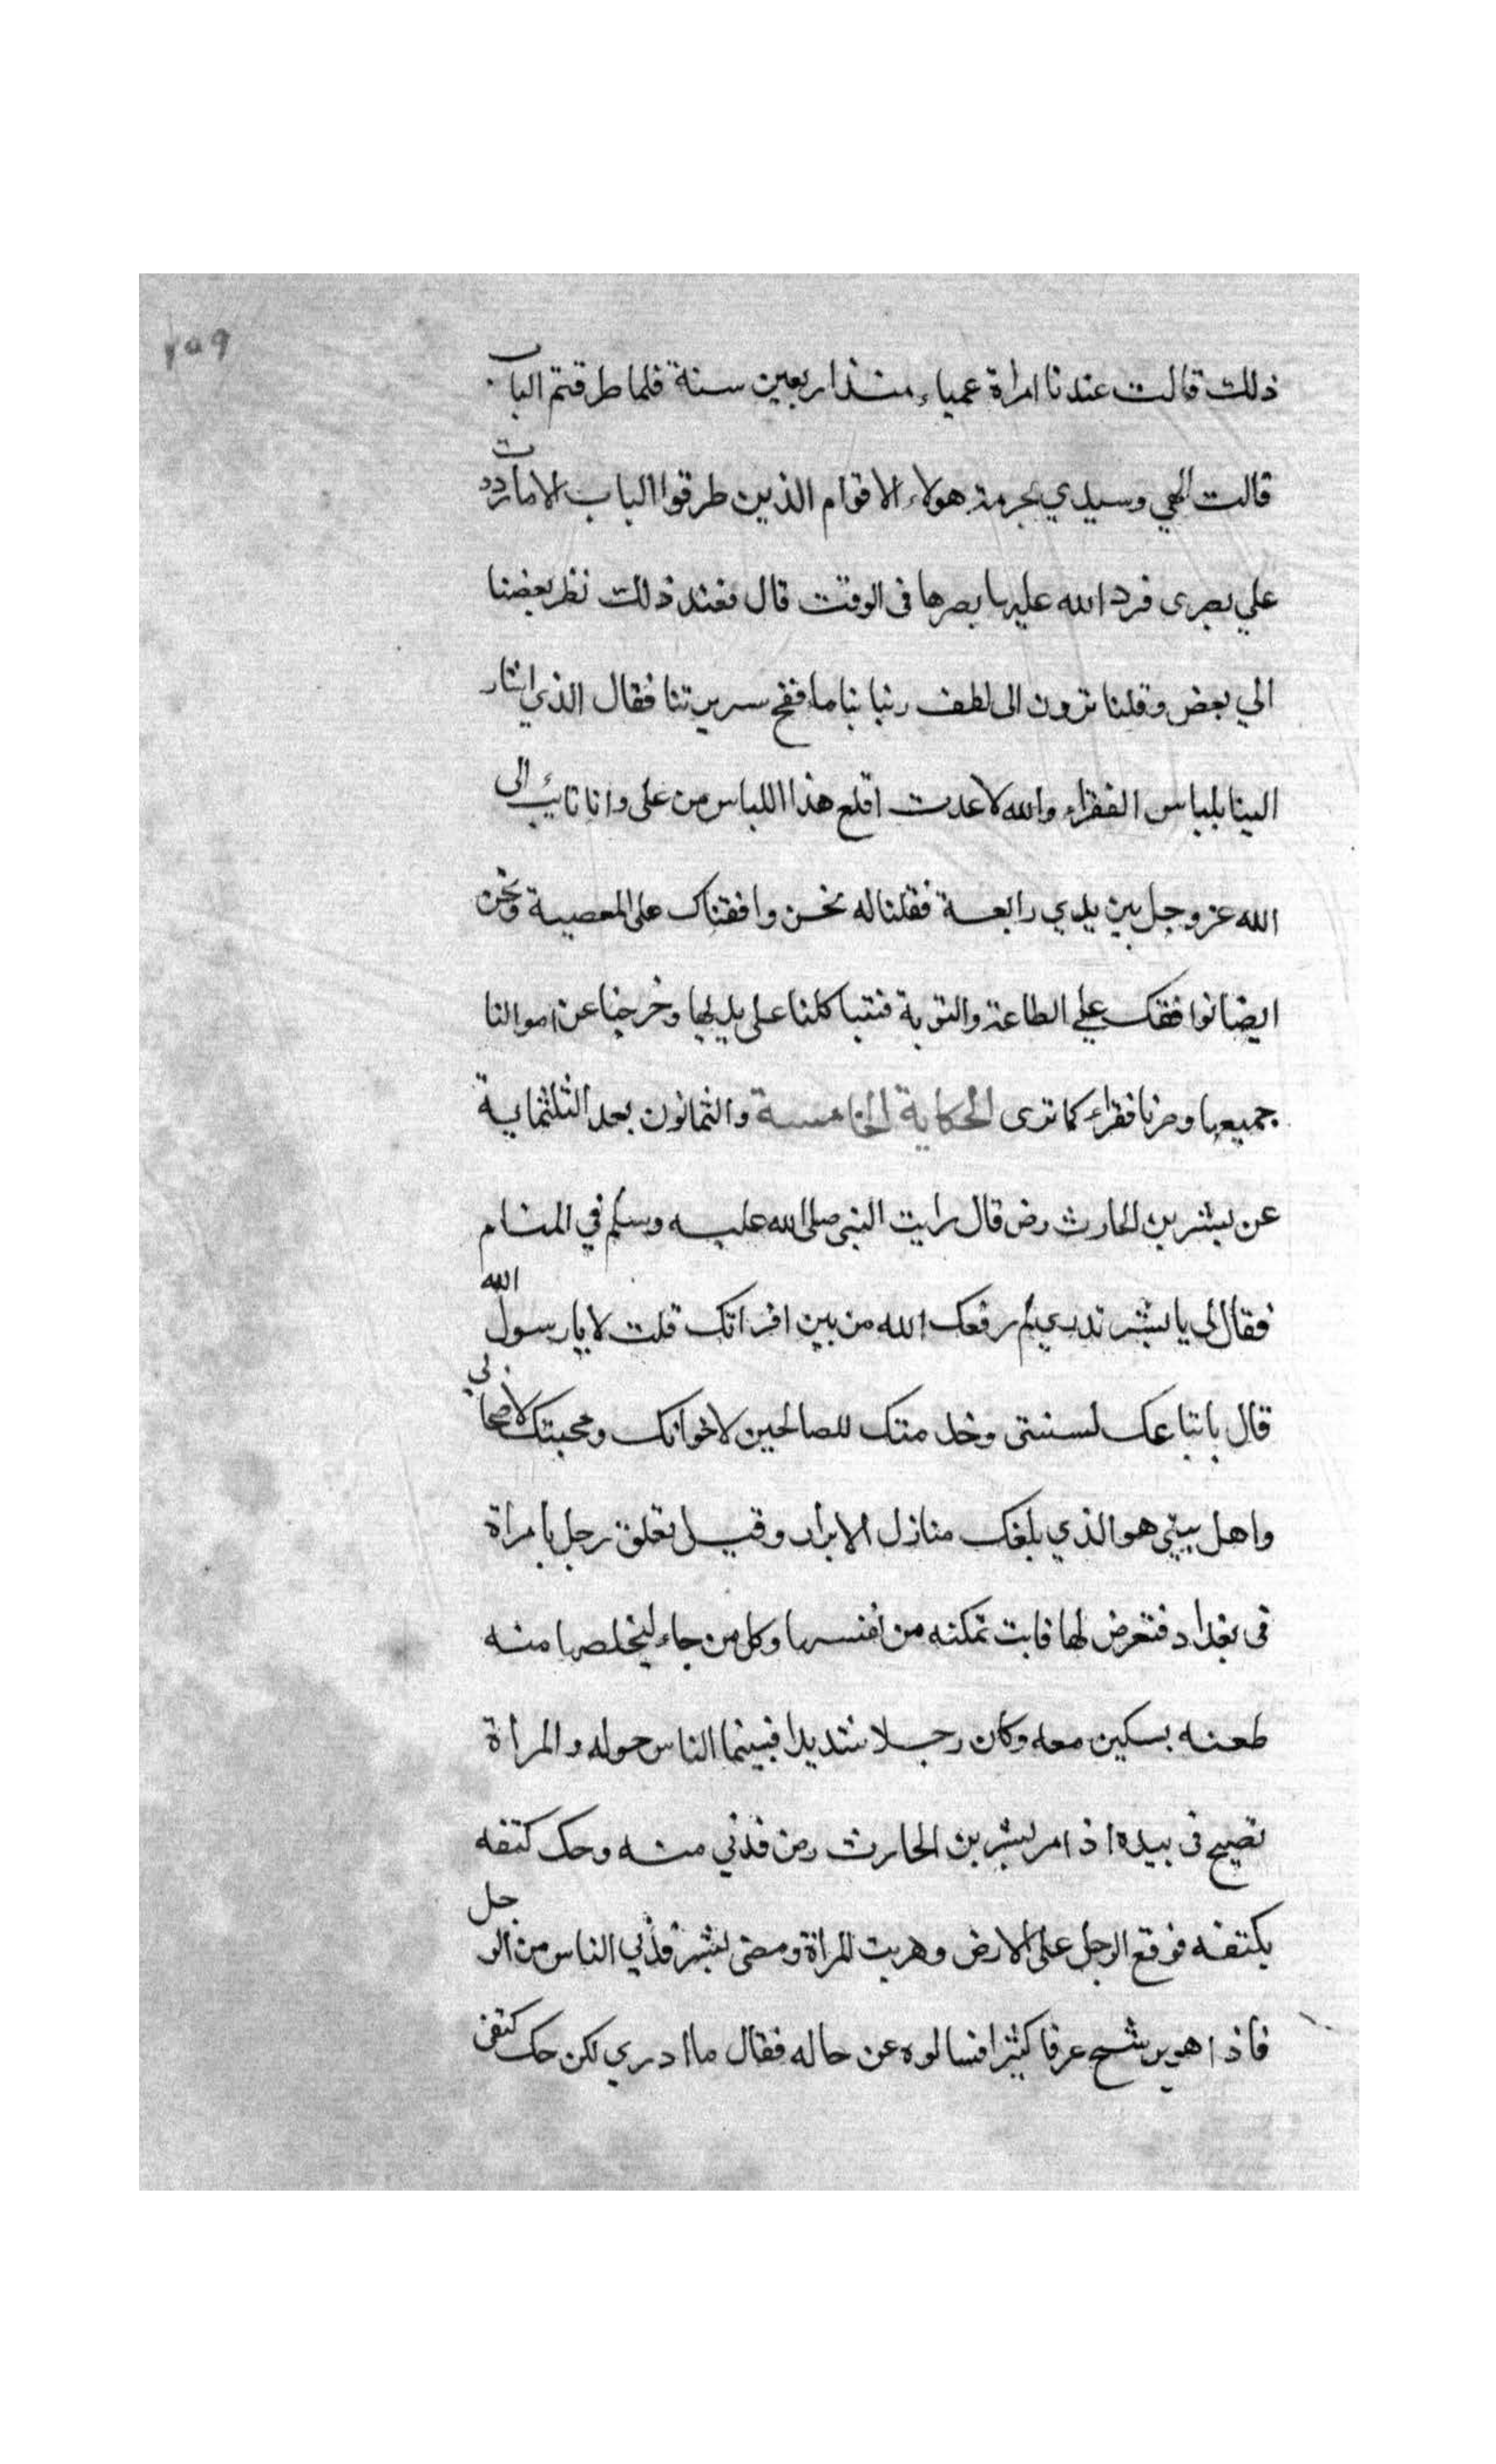 ٢٥٩
ذلك قالت عندنا امراة عمياء منذ اربعين سنة فلما طرقتم الباب
قالت الهي وسيدي بحرمة هولاء الاقوام الذين طرقوا الباب الا ما رددت
علي بصرى فرد الله عليها بصرها فى الوقت قال فعند ذلك نظر بعضنا
الي بعض وقلنا ترون الى لطف ربنا بنا ما فضح سريرتنا فقال الذي اشار
الينا بلباس الفقراء والله لا عدت اقلع هذا اللباس من على وانا تايب الى
الله عز وجل بين يدي رابعة فقلنا له نحن وافقناك على المعصية ونحن
ايضا نوافقك علي الطاعة والتوبة فتبنا كلنا على يديها وخرجنا عن اموالنا
جميعها وصرنا فقراء كما ترى الحكاية الخامسة والثمانون بعد الثلثماية
عن بشر بن الحارث رض قال رايت النبى صلى الله عليه وسلم في المنام
فقال لى يا بشر تدري لم رفعك الله من بين اقرانك قلت لا يا رسول الله
قال باتباعك لسنتى وخدمتك للصالحين لاخوانك ومحبتك لاصحابي
واهل بيتي هو الذي بلغك منازل الابرار وقيل تعلق رجل بامراة
فى بغداد فتعرض لها فابت تمكنه من نفسها وكل من جاء ليخلصها منه
طعنه بسكين معه وكان رجلا شديدا فبينما الناس حوله والمراة
تصيح فى بيده اذ امر بشر بن الحارث رض فدني منه وحك كتفه
بكتفه فوقع الرجل على الارض وهربت المراة ومضى بشر فدني الناس من الرجل
فاذا هو يرشح عرقا كثيرا فسالوه عن حاله فقال ما ادري لكن حك كتفى